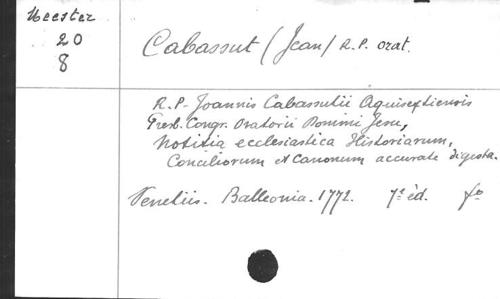 Meester
20
8
Cabassut (Jean) R.P. orat.
R.P. Joannis Cabassutii Aquisextiensis
Presb. Congr. Oratorii Domini Jesu,
Notitia ecclesiastica Historiarum,
Conciliorum et Canonum accurate digesta.
Venetiis. Balleonia. 1772. 7e éd. fo